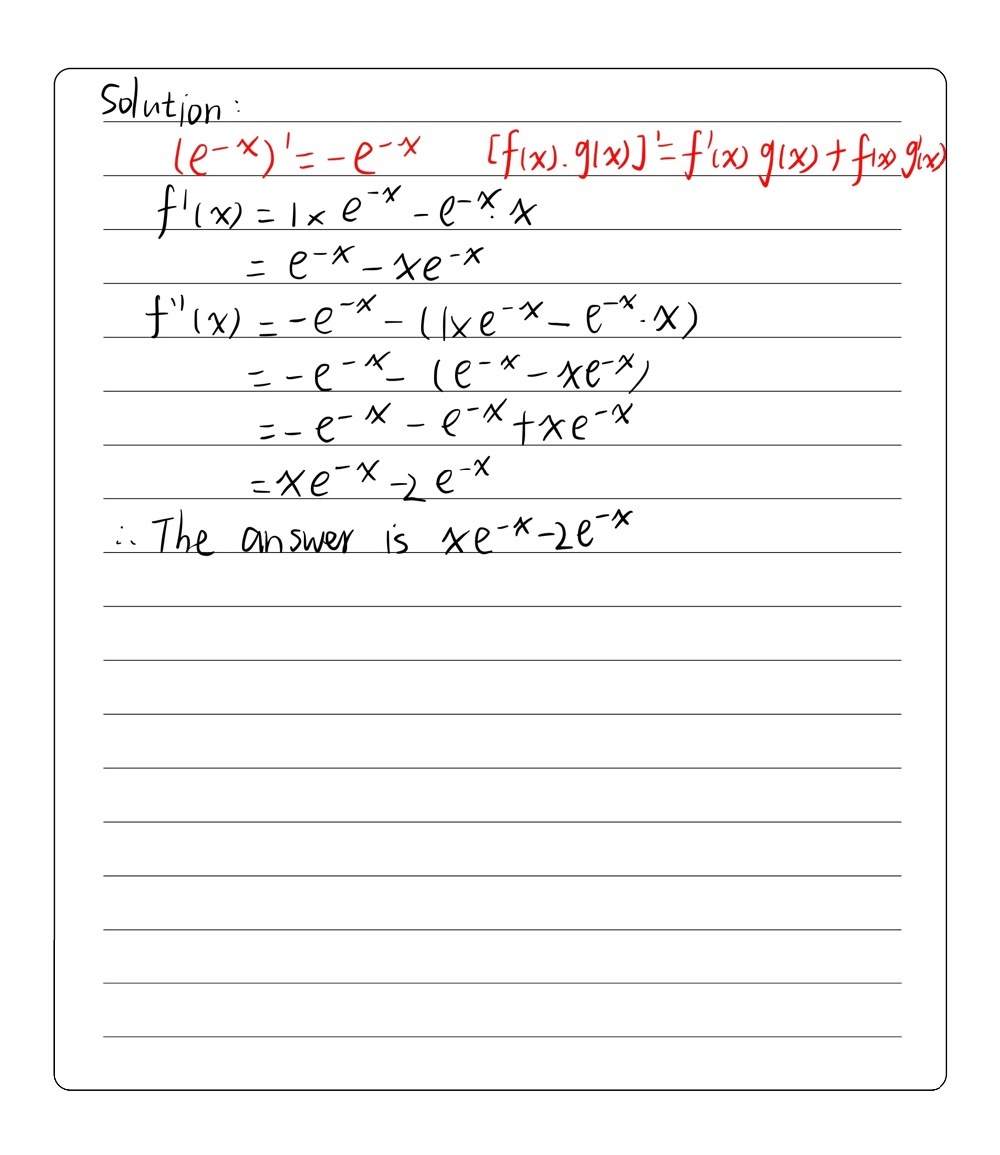 Solution:
(e⁻ˣ)' = -e⁻ˣ [f(x).g(x)]' = f'(x) g(x) + f(x) g'(x)
f'(x) = 1 × e⁻ˣ - e⁻ˣ · x
= e⁻ˣ - xe⁻ˣ
f''(x) = -e⁻ˣ - (1×e⁻ˣ - e⁻ˣ · x)
= -e⁻ˣ - (e⁻ˣ - xe⁻ˣ)
= -e⁻ˣ - e⁻ˣ + xe⁻ˣ
= xe⁻ˣ - 2e⁻ˣ
∴ The answer is xe⁻ˣ - 2e⁻ˣ